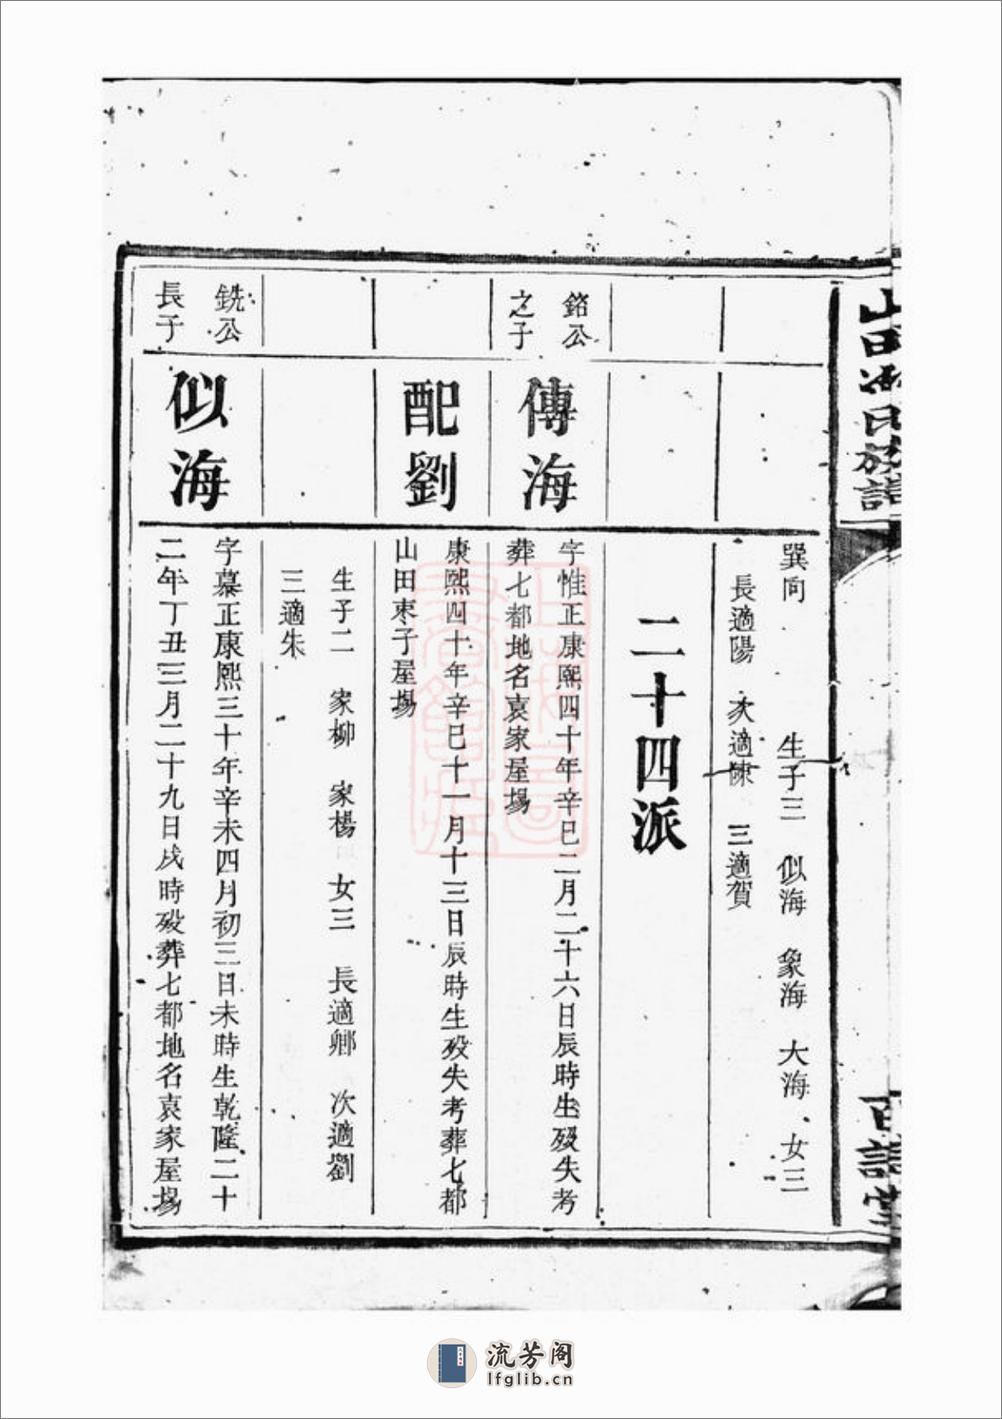 巽向　生子三　似海　象海　大海　女三
長適陽　次適陳　三適賀
二十四派
銘公
之子
傳海
字惟正康熙四十年辛巳二月二十六日辰時生歿失考
葬七都地名袁家屋塲
配劉
康熙四十年辛巳十一月十三日辰時生歿失考葬七都
山田棗子屋塲
生子二　家柳　家楊　女三　長適鄉　次適劉
三適朱
銑公
長子
似海
字慕正康熙三十年辛未四月初三日未時生乾隆二十
二年丁丑三月二十九日戌時歿葬七都地名袁家屋塲
流芳阁
lfglib.cn